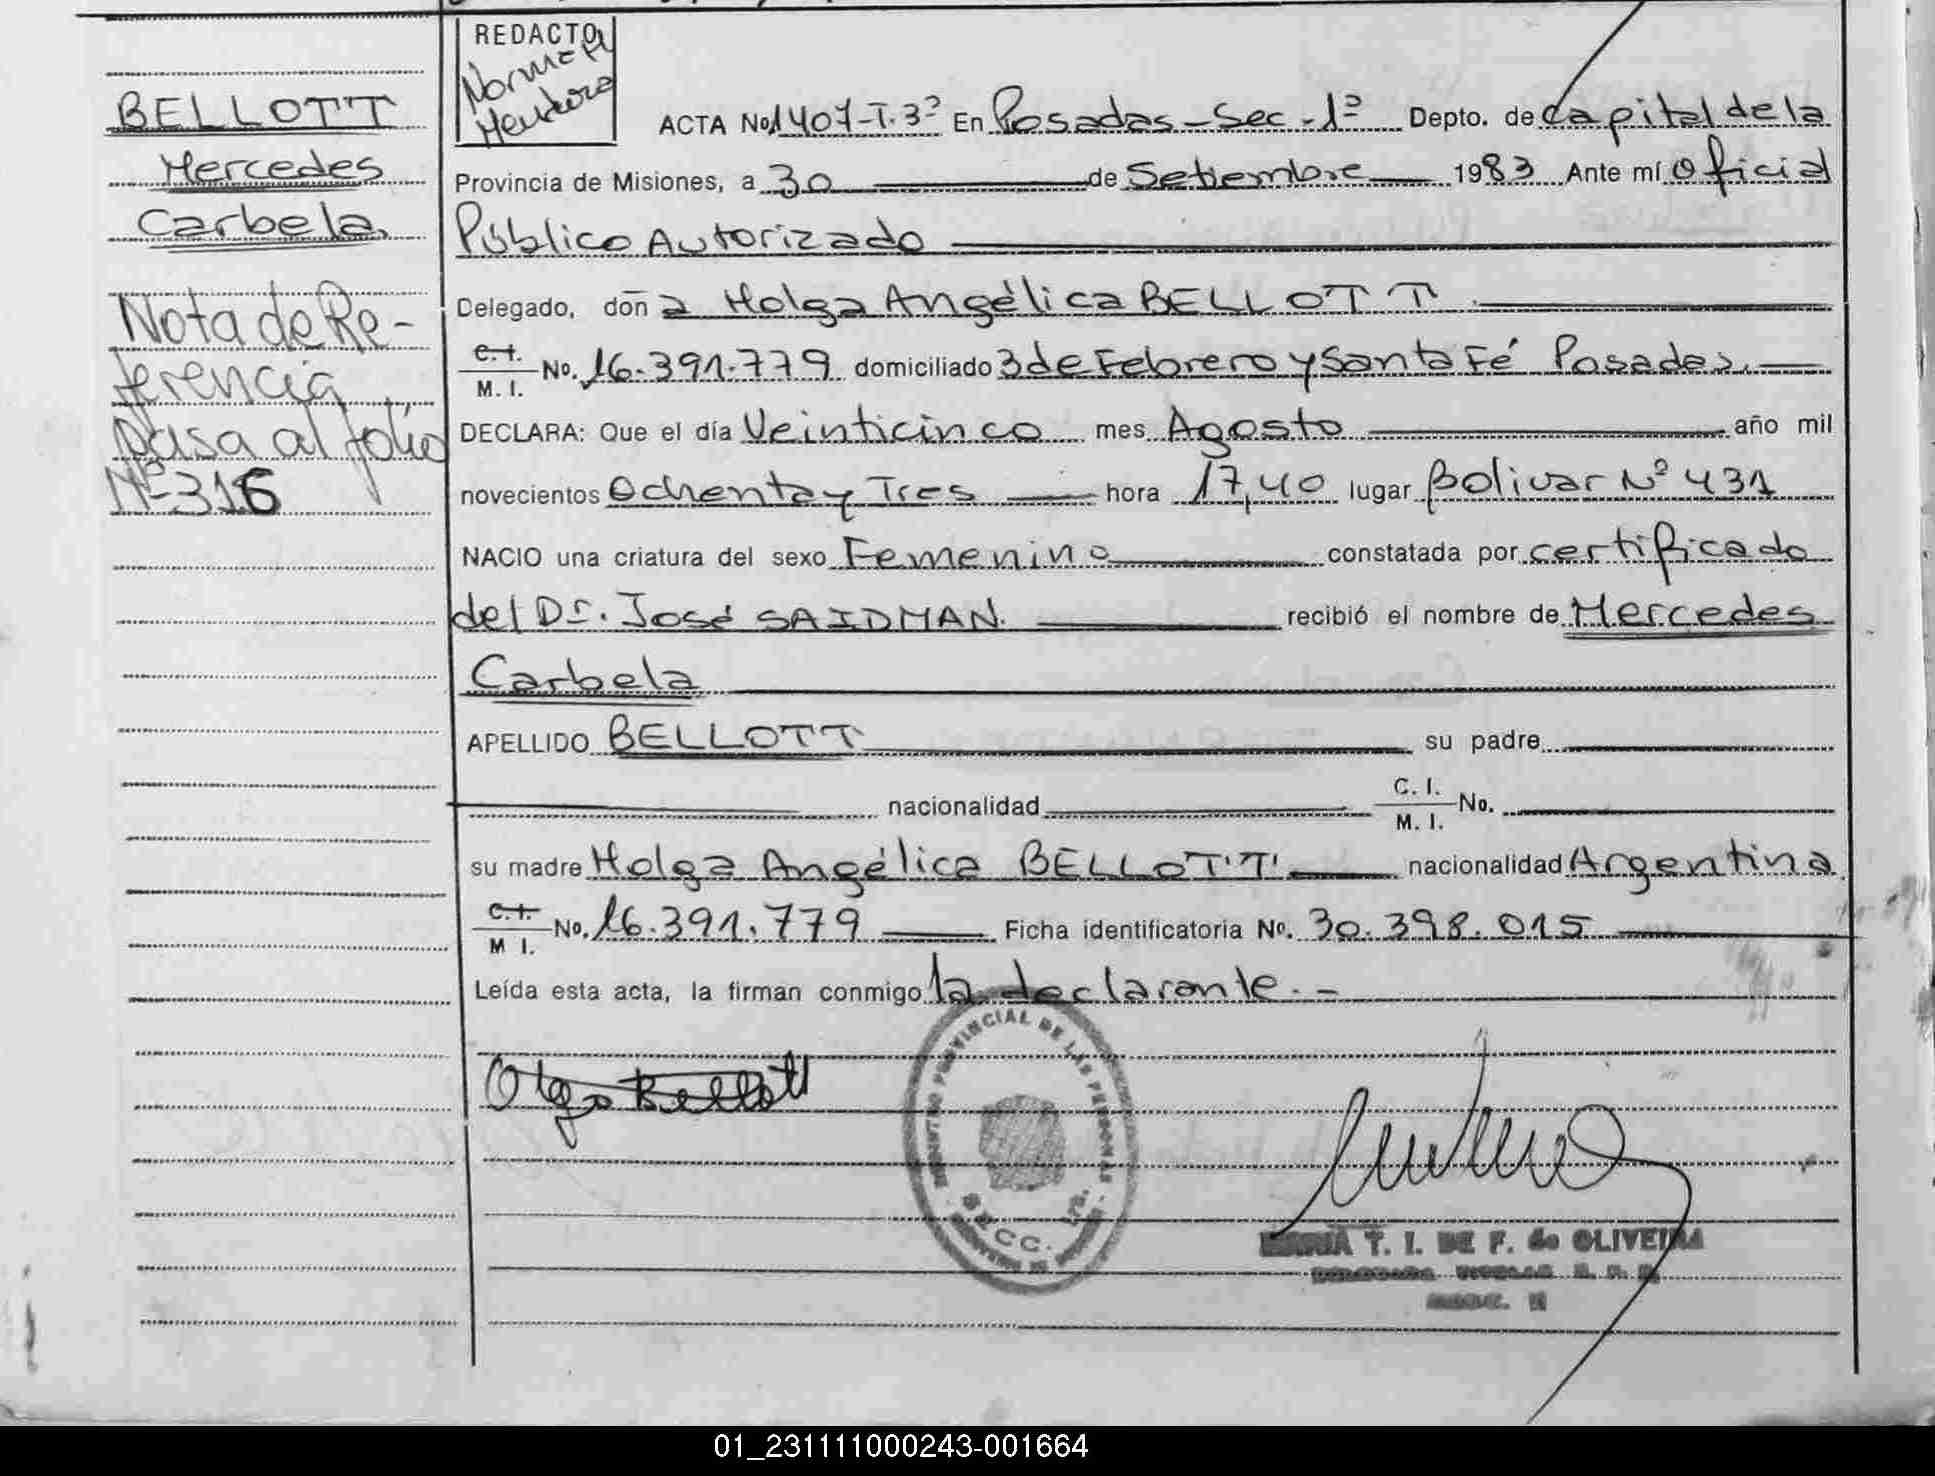 BELLOTT
Mercedes
Carbela.
Nota de Re-
ferencia
pasa al folio
Nº 316
REDACTO
Norma H
ACTA No. 1407-T.3º En Posadas - Sec - 1º Depto. de Capital de la
Provincia de Misiones, a 30 de Setiembre 1983 Ante mí Oficial
Público Autorizado
Delegado, don a Holga Angélica BELLOTT
C.I.
M. I. No. 16.391.779 domiciliado 3 de Febrero y Santa Fé Posadas.
DECLARA: Que el día Veinticinco mes Agosto año mil
novecientos Ochenta y Tres hora 17,40 lugar Bolivar Nº 431
NACIO una criatura del sexo Femenino constatada por certificado
del Dr. José SAIDMAN. recibió el nombre de Mercedes
Carbela
APELLIDO BELLOTT su padre
nacionalidad C. I.
M. I. No.
su madre Holga Angélica BELLOTT nacionalidad Argentina
C.I.
M I. No. 16.391.779 Ficha identificatoria No. 30.398.015
Leída esta acta, la firman conmigo la declarante. -
Olga Bellott
PROVINCIAL DE LAS PERSONAS
MARIA T. I. DE F. de OLIVEIRA
01_231111000243-001664